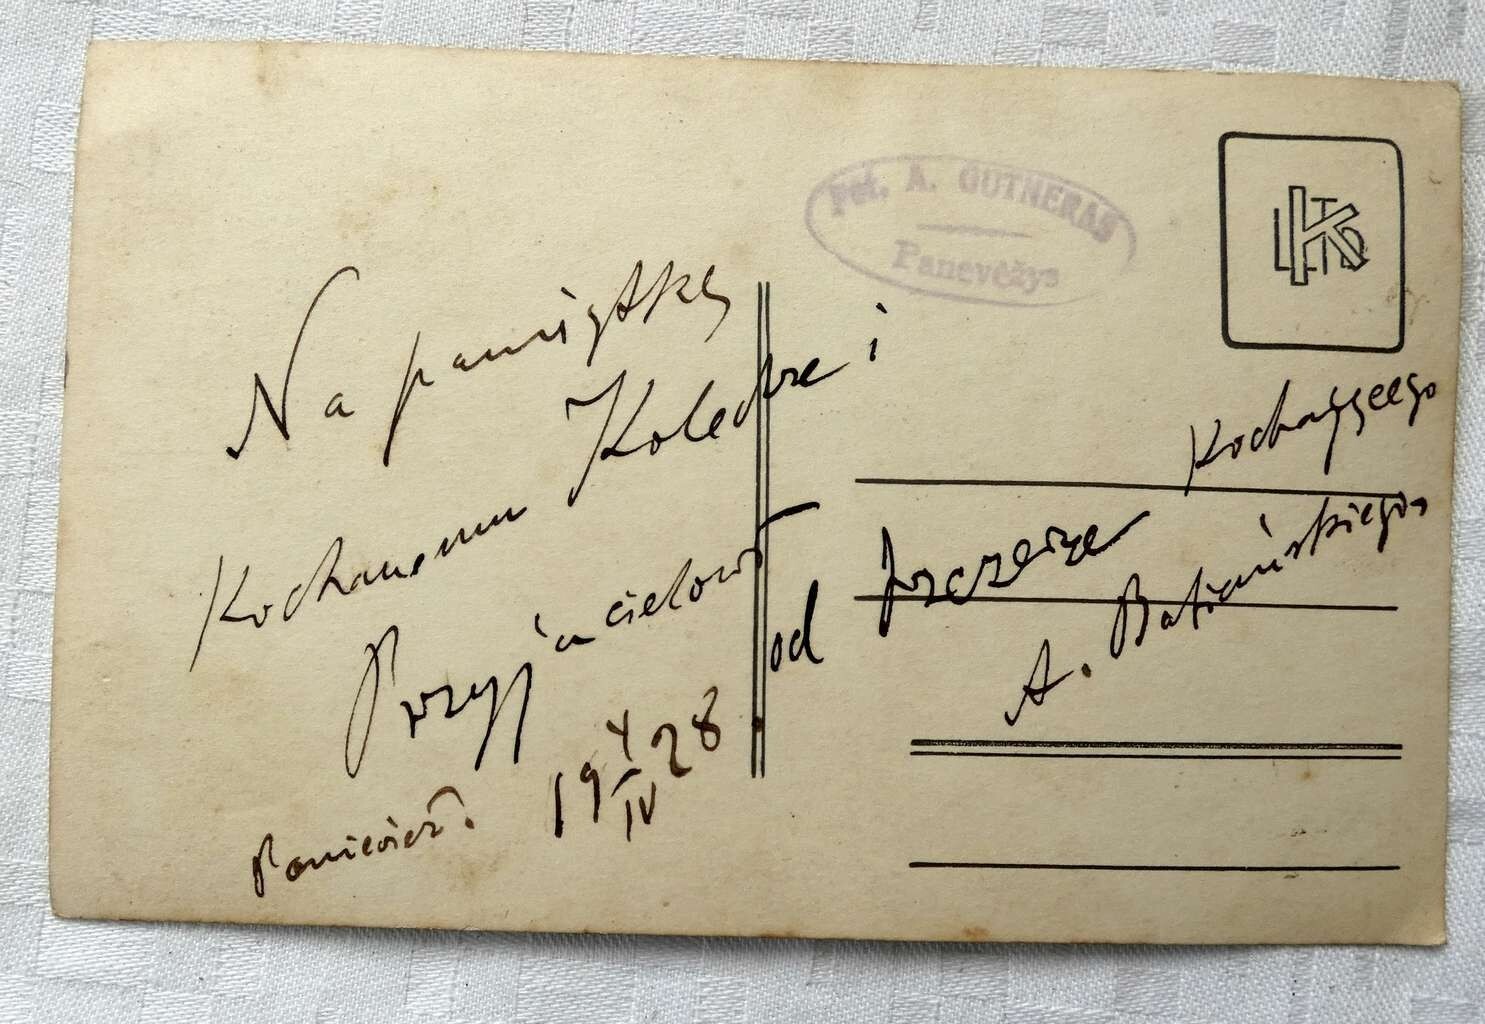 Fot. A. GUTNERAS
Panevėžys
LTK
Na pamiątkę
Kochanemu Koledze i
Przyjacielowi
od szczerze
Kochającego
A. Batiańskiego
Poniewież. 19 X/IV 28